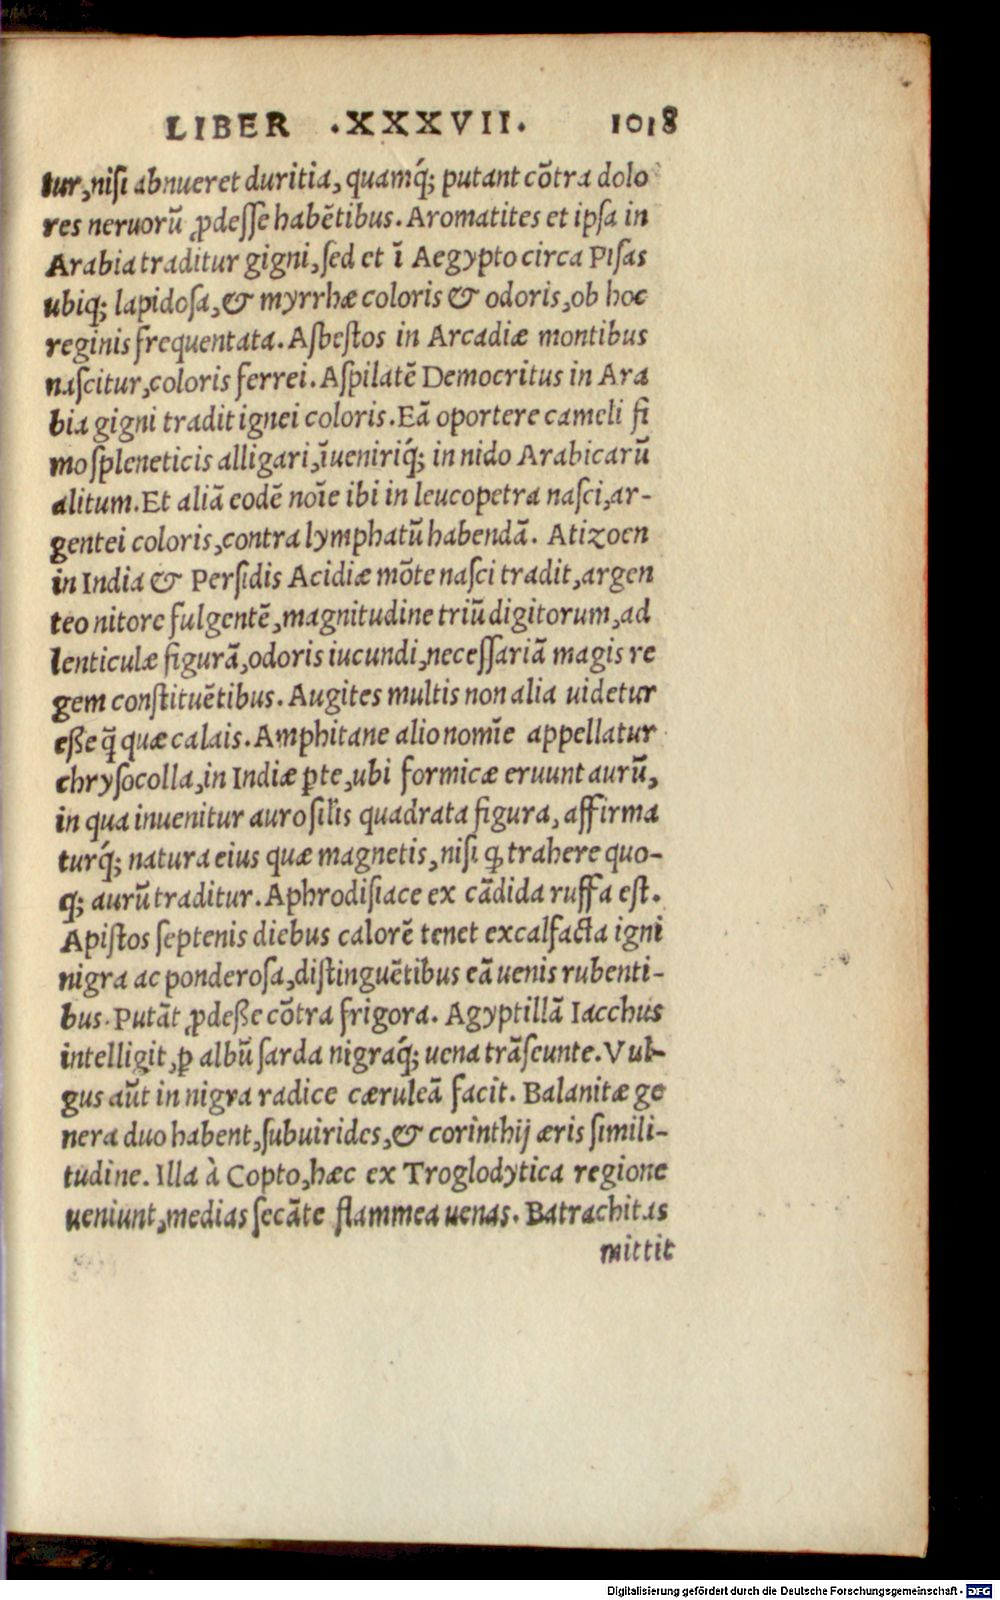 LIBER .XXXVII. 1018
tur,niſi abnueret duritia, quamq́; putant cõtra dolo
res neruorũ ꝓdeſſe habẽtibus. Aromatites et ipſa in
Arabia traditur gigni,ſed et ĩ Aegypto circa Piſas
ubiq; lapidoſa,& myrrhæ coloris & odoris,ob hoc
reginis frequentata. Aſbeſtos in Arcadiæ montibus
naſcitur,coloris ferrei. Aſpilatẽ Democritus in Ara
bia gigni tradit ignei coloris. Eã oportere cameli fi
mo ſpleneticis alligari,ĩueniriq́; in nido Arabicarũ
alitum. Et aliã eodẽ noĩe ibi in leucopetra naſci,ar-
gentei coloris,contra lymphatũ habendã. Atizoen
in India & Perſidis Acidiæ mõte naſci tradit,argen
teo nitore fulgentẽ,magnitudine triũ digitorum,ad
lenticulæ figurã,odoris iucundi,neceſſariã magis re
gem conſtituẽtibus. Augites multis non alia uidetur
eße q̃ quæ calais. Amphitane alio nomĩe appellatur
chryſocolla,in Indiæ ꝑte,ubi formicæ eruunt aurũ,
in qua inuenitur auro ſil̃is quadrata figura, affirma
turq́; natura eius quæ magnetis,niſi ꝙ trahere quo-
q; aurũ traditur. Aphrodiſiace ex cãdida ruffa eſt.
Apiſtos ſeptenis diebus calorẽ tenet excalfacta igni
nigra ac ponderoſa,diſtinguẽtibus eã uenis rubenti-
bus. Putãt ꝓdeße cõtra frigora. Agyptillã Iacchus
intelligit,ꝑ albũ ſarda nigraq́; uena trãſeunte. Vul-
gus aũt in nigra radice cæruleã facit. Balanitæ ge
nera duo habent,ſubuirides,& corinthij æris ſimili-
tudine. Illa à Copto,hæc ex Troglodytica regione
ueniunt,medias ſecãte flammea uenas. Batrachitas
mittit
Digitalisierung gefördert durch die Deutsche Forschungsgemeinschaft - DFG